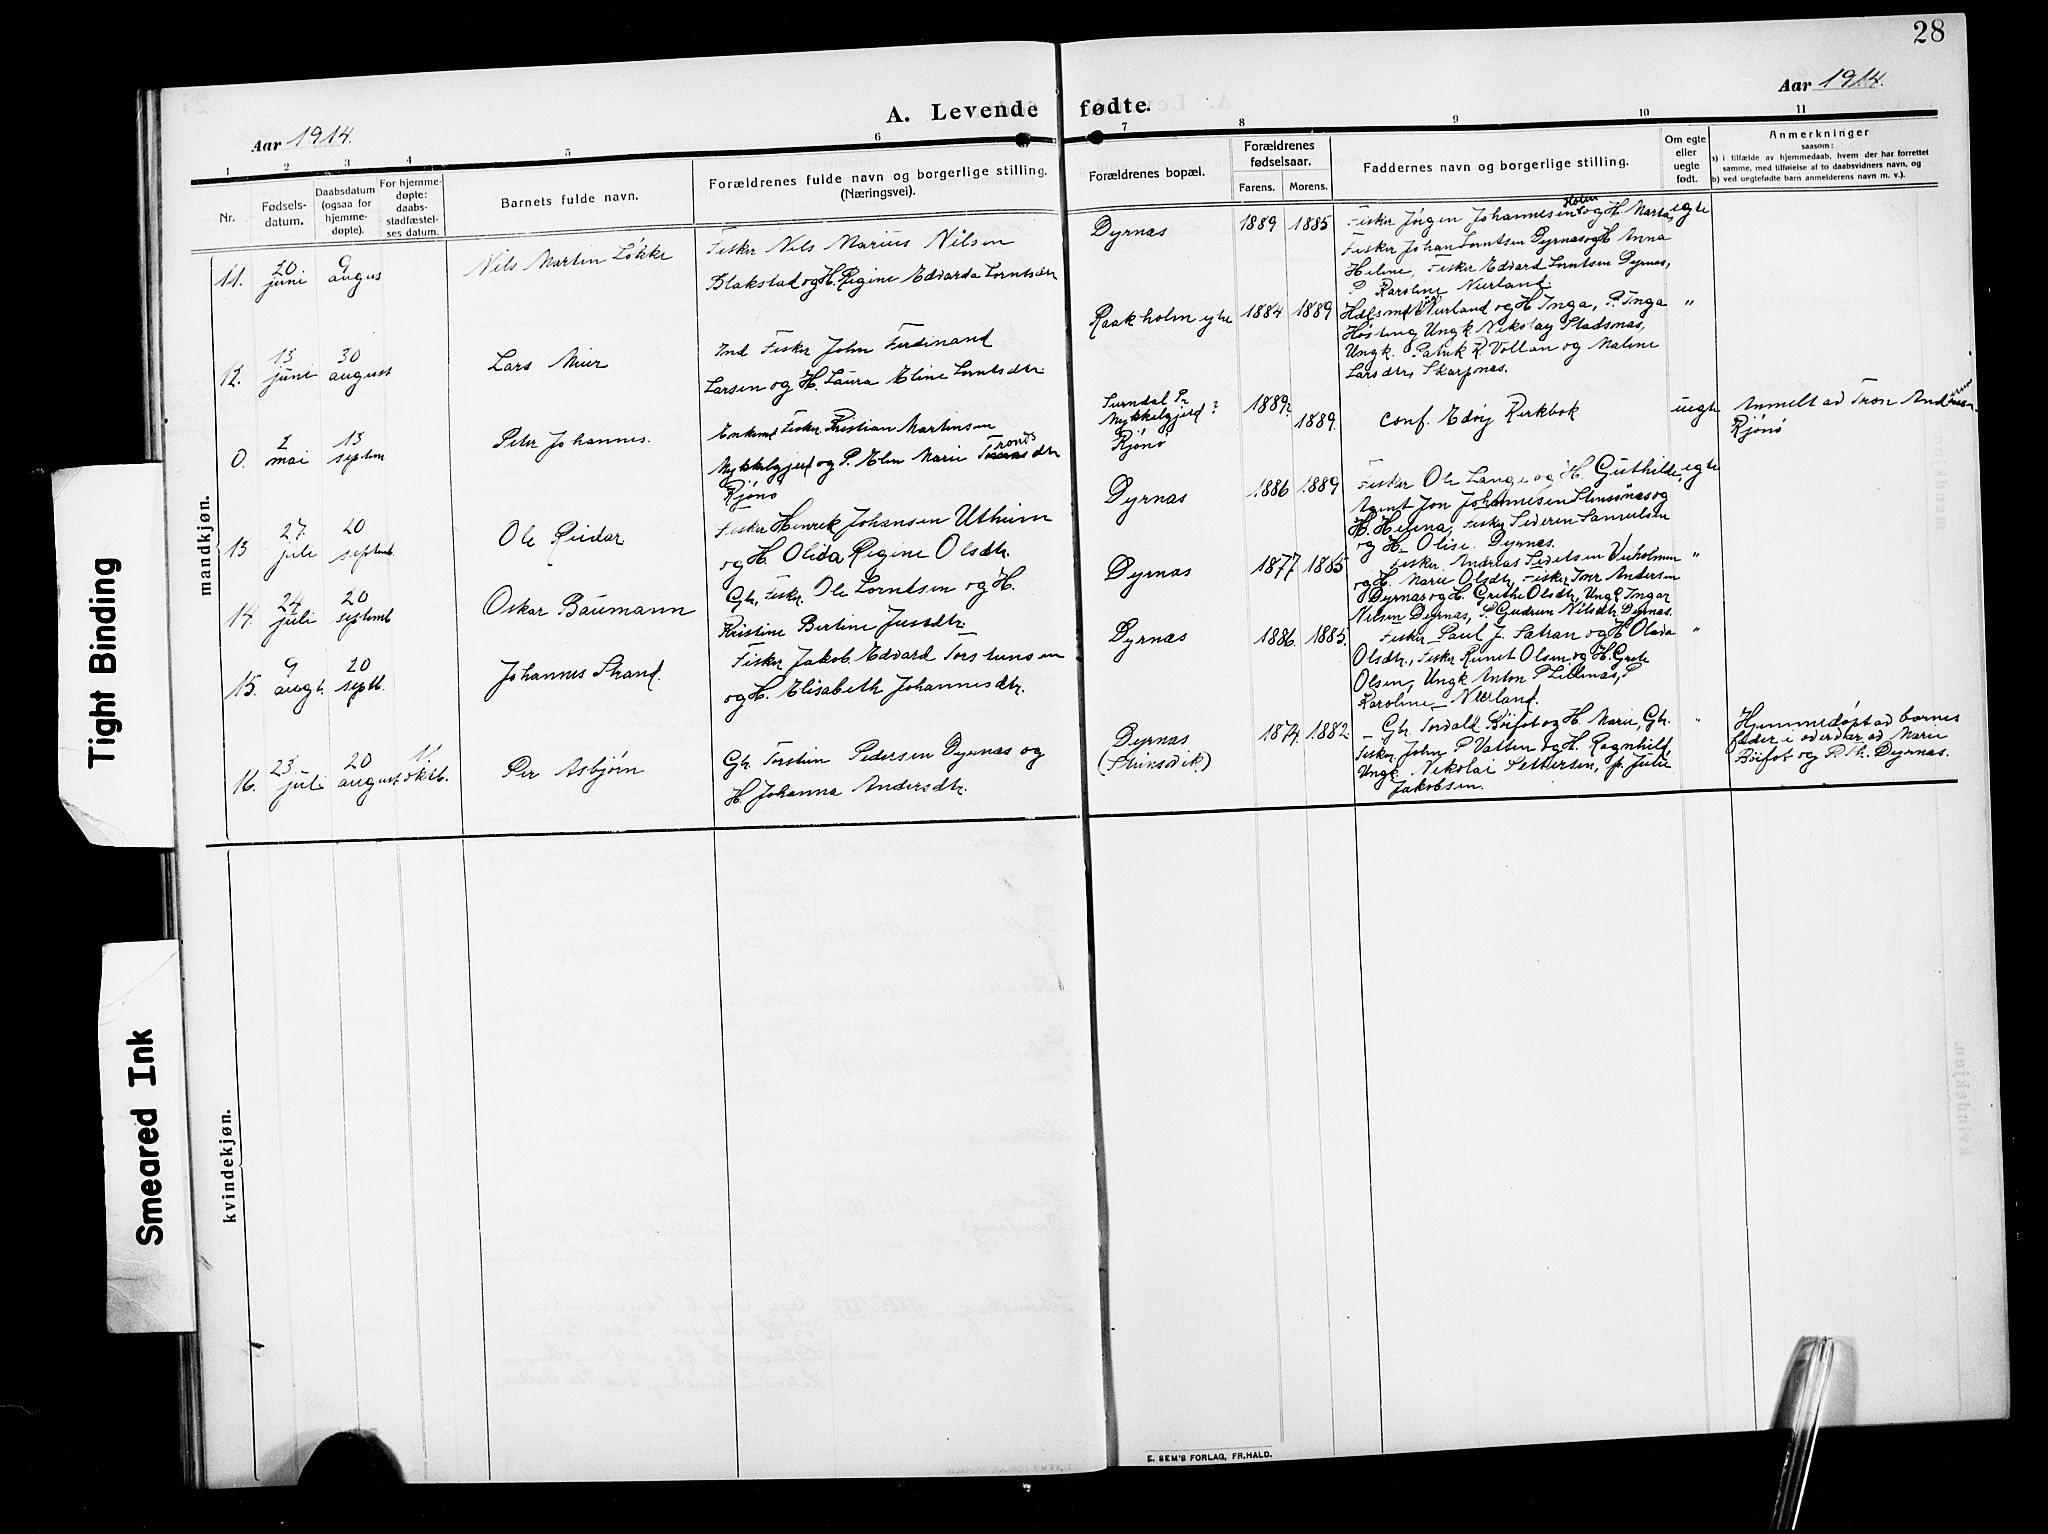 28
Aar 1914.
A. Levende fødte.
Aar 1914.
1 2 3 4 5 6 7 8 9 10 11
Nr.
Fødsels-
datum.
Daabsdatum
(ogsaa for
hjemme-
døpte).
For hjemme-
døpte:
daabs-
stadfæstel-
ses datum.
Barnets fulde navn.
Forældrenes fulde navn og borgerlige stilling.
(Næringsvei).
Forældrenes bopæl.
Forældrenes
fødselsaar.
Farens. Morens.
Faddernes navn og borgerlige stilling.
Om egte
eller
uegte
født.
Anmerkninger
saasom:
a) i tilfælde av hjemmedaab, hvem der har forrettet
samme, med tilføielse af to daabsvidners navn, og
b) ved uegtefødte barn anmelderens navn m. v.).
mandkjøn.
11. 20 juni 9 augus
Nils Martin Løkke
Fisker Nils Marius Nilsen
Blakstad og H. Regine Edvarda Lorntsdtr
Dyrnas 1889 1885
Fisker Jørgen Johannesen Holen og H. Marta, egte
Fisker Johan Lorntsen Dyrnas og H Anna
Helene, Fisker Edvard Lorntsen Dyrnas,
P Karoline Nerland.
12. 13 juni 30 august
Lars Meier
Ind Fisker John Ferdinand
Larsen og H. Laura Eline Lorntsdtr.
Raakholm 1884 1889
Nerland og H Inga, P. Inga "
Høsteng, Ungk Nikolay Stadsnas,
Ungk. Patrik R. Vollan og Malene
Larsdtr, Skarpnas.
0. 2 mai 13 septem
Peter Johannes.
Enkemd Fisker Kristian Martinsen
Mykkelgjerd og P. Elen Marie Tronds dtr
Kjønø
Surndal Pr
Mykkelgjerd ?
Kjønø
1889? 1889.
Conf. Edøy Kirkbok
uegte
Anmelt ad Tron
Kjønø
13 27 juli 20 septemb.
Ole Reidar
Fisker Henrik Johansen Utheim
og H. Olida Regine Olsdtr.
Dyrnas 1886 1889
Fisker Ole Lange og H. Guthilde, egte
Agent Jon Johannesen Stensønas og
H. Helena, Fisker Pederen Samuelsen
og H. Olise. Dyrnas.
14. 24 juli 20 septemb
Oskar Baumann
Gbr, Fisker Ole Lorntsen og H.
Kristine Bertine Jussdtr.
Dyrnas 1877 1885
Fisker Andreas Pedersen Veiholmen "
og H. Marie Olsdtr, Fisker Iver Andersen
Dyrnas og H. Grethe Olsdtr, Ungk Ingar
Nilsen Dyrnas, P. Gudrun Nilsdtr Dyrnas.
15. 9 augt. 20 septb.
Johannes Strand.
Fisker Jakob Edvard Torstensen
og H. Elisabeth Johannesdtr.
Dyrnas 1886. 1885.
Fisker Paul J. Satran og H Olava "
Olsdtr., Fisker Kunet Olsen og H. Grete
Olsen, Ungk Anton P Lillenas, P
Karoline Nerland.
16. 23 juli 20 august 11 oktb.
Per Asbjørn
Gbr. Torstein Pedersen Dyrnas og
H. Johanna Andersdtr.
Dyrnas
(Steinsvik.)
1874. 1882
Gbr. Torvald Røifot og H. Marie, Gbr. "
Fisker John P Vatten og H. Ragnhild,
Ungk Nikolai Settersen, p. Julie
Jakobsen.
Hjemmedøpt ad barnes
fader i overvar ad Marie
Røifot og P. Th. Dyrnas.
kvindekjøn.
Tight Binding
Smeared Ink
E. SEM'S FORLAG, FR.HALD.